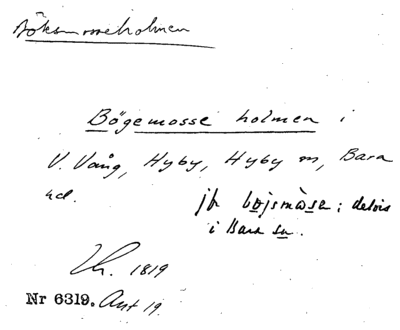 Böksmosseholmen
Bögemosse holmen i
V. Vång, Hyby, Hyby sn, Bara
hd.
jfr bøjsmåsa; delvis
i Bara sn.
Lh. 1819
Nr 6319. Ant 19.